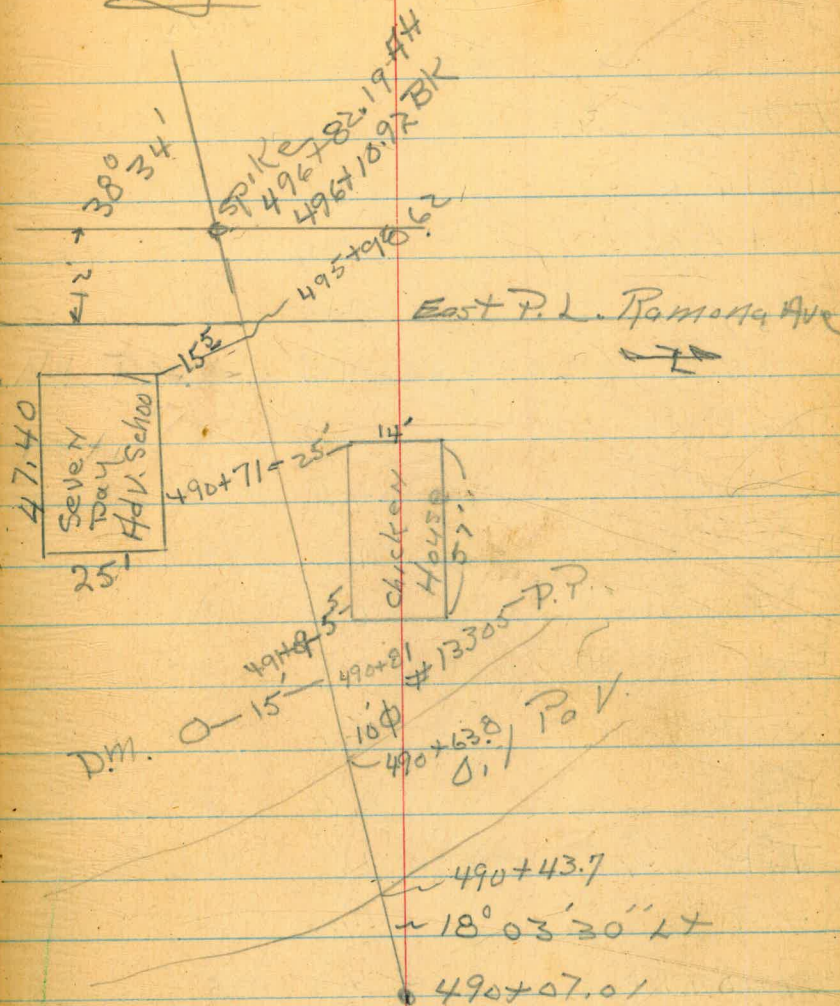 38° 34'
Spike
496+82.19 AH
496+10.92 BK
495+98.62
12'
East P.L. Ramona Ave
15⁵
47.40
Seven
Day
Adv. School
25'
490+71- 25'
14'
Chicken
House
57'
5⁵
490+81
# 13305 P.P.
D.M.
15'
10'ϕ
490+63.8
Pav.
490+43.7
18° 03' 30" Lt
490+07.01